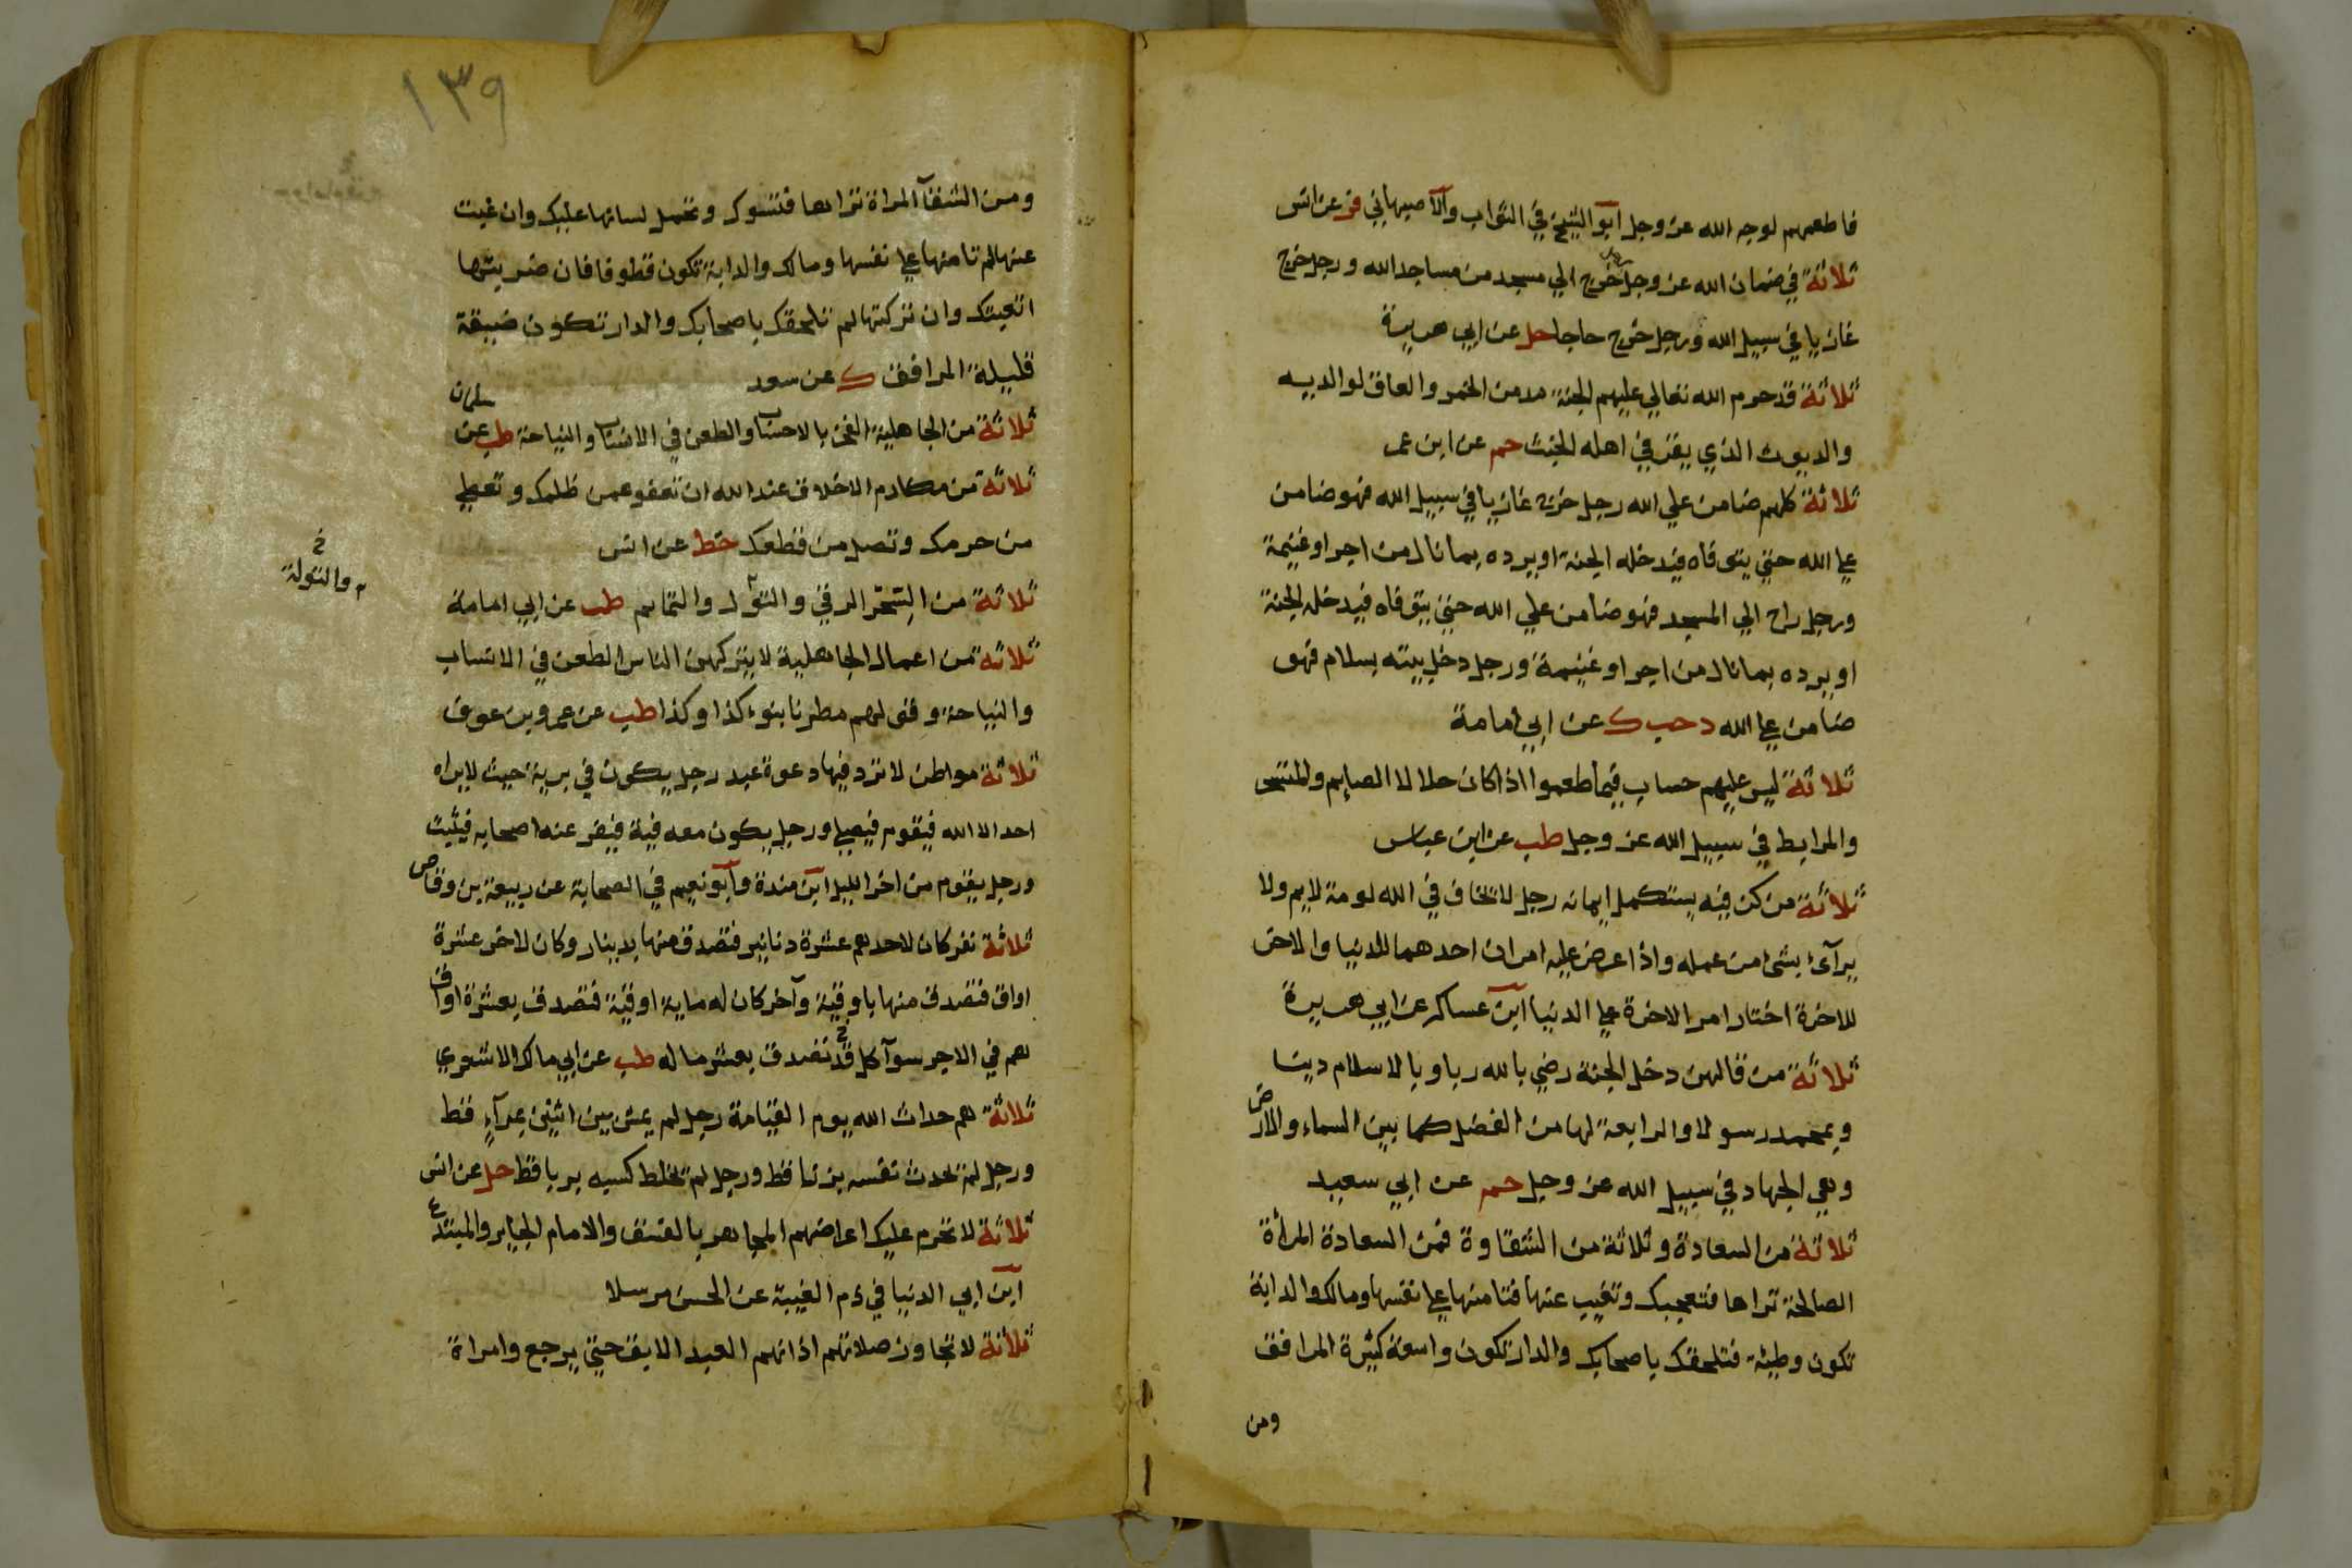 فاطعمهم لوجه الله عز وجل ابو الشيخ في الثواب والاصبهاني فر عن انس
ثلاثة في ضمان الله عز وجل رجل خرج الي مسجد من مساجد الله ورجل خرج
غازيا في سبيل الله ورجل خرج حاجا حل عن ابي هريرة
ثلاثة قد حرم الله تعالي عليهم الجنة مدمن الخمر والعاق لوالديه
والديوث الذي يقر في اهله الخبث حم عن ابن عمر
ثلاثة كلهم ضامن علي الله رجل خرج غازيا في سبيل الله فهو ضامن
علي الله حتي يتوفاه فيدخله الجنة او يرده بما نال من اجر او غنيمة
ورجل راح الي المسجد فهو ضامن علي الله حتي يتوفاه فيدخله الجنة
او يرده بما نال من اجر او غنيمة ورجل دخل بيته بسلام فهو
ضامن علي الله د حب ك عن ابي امامة
ثلاثة ليس عليهم حساب فيما طعموا اذا كان حلالا الصايم والمتسحر
والمرابط في سبيل الله عز وجل طب عن ابن عباس
ثلاثة من كن فيه يستكمل ايمانه رجل لا يخاف في الله لومة لايم ولا
يرآئ بشئ من عمله واذا عرض عليه امران احدهما للدنيا والاخر
للاخرة اختار امر الاخرة علي الدنيا ابن عساكر عن ابي هريرة
ثلاثة من قالهن دخل الجنة رضي بالله ربا وبالاسلام دينا
وبمحمد رسولا والرابعة لها من الفضل كما بين السماء والارض
وهي الجهاد في سبيل الله عز وجل حم عن ابي سعيد
ثلاثة من السعادة وثلاثة من الشقاوة فمن السعادة المرأة
الصالحة تراها فتعجبك وتغيب عنها فتامنها علي نفسها ومالك والدابة
تكون وطيئة فتلحقك باصحابك والدار تكون واسعة كثيرة المرافق
ومن
١٣٩
ومن الشقآ المراة تراها فتسوك وتحمل لسانها عليك وان غبت
عنها لم تامنها علي نفسها ومالك والدابة تكون قطوفا فان ضربتها
اتعبتك وان تركتها لم تلحقك باصحابك والدار تكون ضيقة
قليلة المرافق ك عن سعد
ثلاثة من الجاهلية الفخر بالاحساب والطعن في الانساب والنياحة طب عن سلمان
ثلاثة من مكارم الاخلاق عند الله ان تعفو عمن ظلمك وتعطي
من حرمك وتصل من قطعك خط عن انس
ثلاثة من السحر الرقي والتول والتمايم طب عن ابي امامة
خ
م والتولة
ثلاثة من اعمال الجاهلية لا يتركهن الناس الطعن في الانساب
والنياحة وقولهم مطرنا بنوء كذا وكذا طب عن عمرو بن عوف
ثلاثة مواطن لا ترد فيها دعوة عبد رجل يكون في برية حيث لا يراه
احد الا الله فيقوم فيصلي ورجل يكون معه فية فيفر عنه اصحابه فيثبت
ورجل يقوم من اخر الليل ابن مندة وابو نعيم في الصحابة عن ربيعة بن وقاص
ثلاثة نفر كان لاحدهم عشرة دنانير فتصدق منها بدينار وكان لاخر عشرة
اواق فتصدق منها باوقية وآخر كان له ماية اوقية فتصدق بعشرة اواق
هم في الاجر سوآ كل قد تصدق بعشر ماله طب عن ابي مالك الاشعري
ثلاثة هم حداث الله يوم القيامة رجل لم يمش بين اثنين بمرآء قط
ورجل لم تحدث نفسه بزنا قط ورجل لم يخلط كسبه بربا قط حل عن انس
ثلاثة لا تحرم عليك اعراضهم المجاهر بالفسق والامام الجاير والمبتدع
ابن ابي الدنيا في ذم الغيبة عن الحسن مرسلا
ثلاثة لا تجاوز صلاتهم اذانهم العبد الابق حتي يرجع وامراة